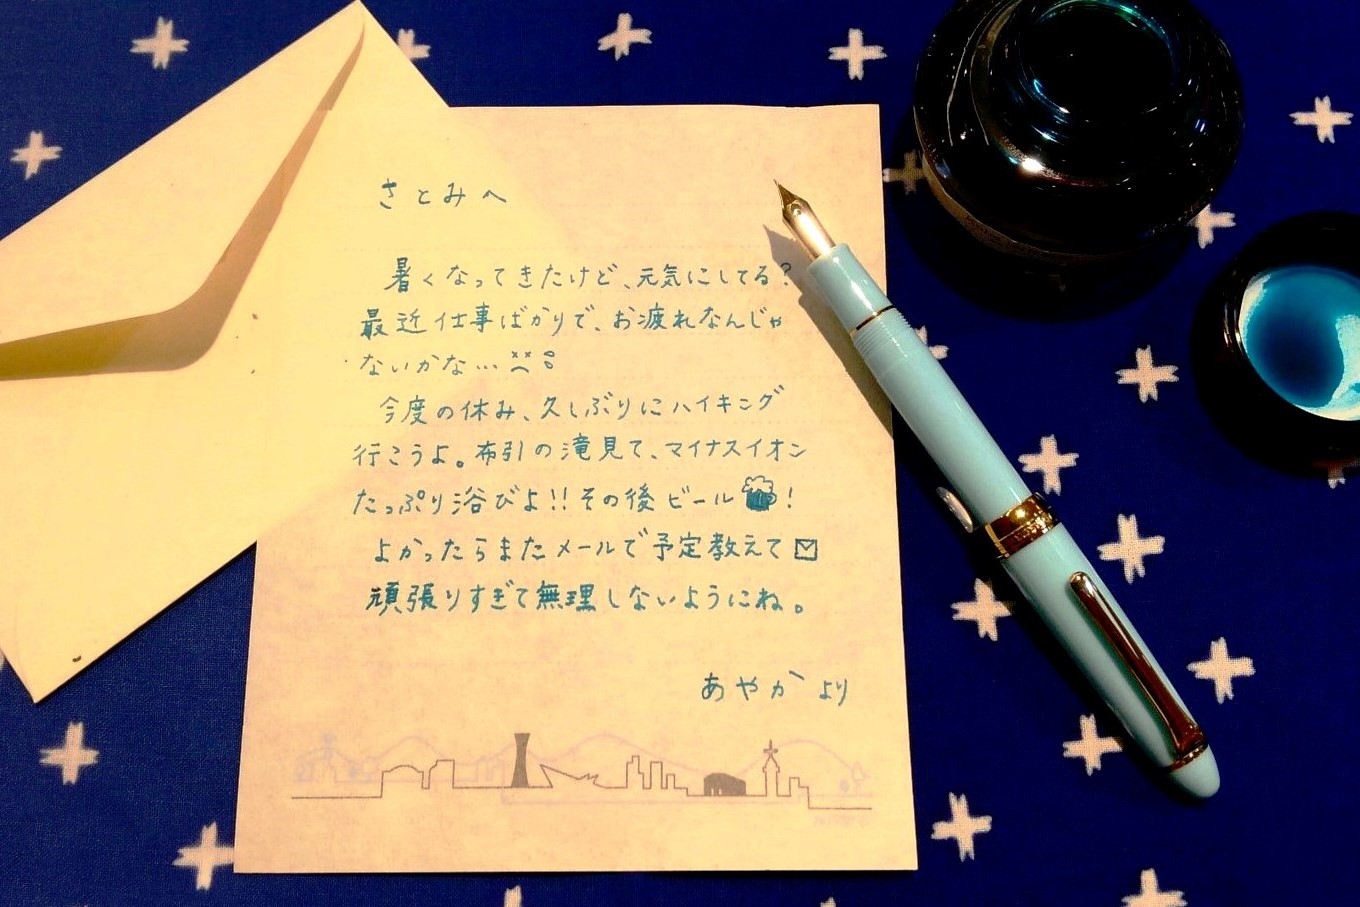 さとみへ
暑くなってきたけど、元気にしてる?
最近仕事ばかりで、お疲れなんじゃ
ないかな…
今度の休み、久しぶりにハイキング
行こうよ。布引の滝見て、マイナスイオン
たっぷり浴びよ!!その後ビール!
よかったらまたメールで予定教えて
頑張りすぎて無理しないようにね。
あやかより